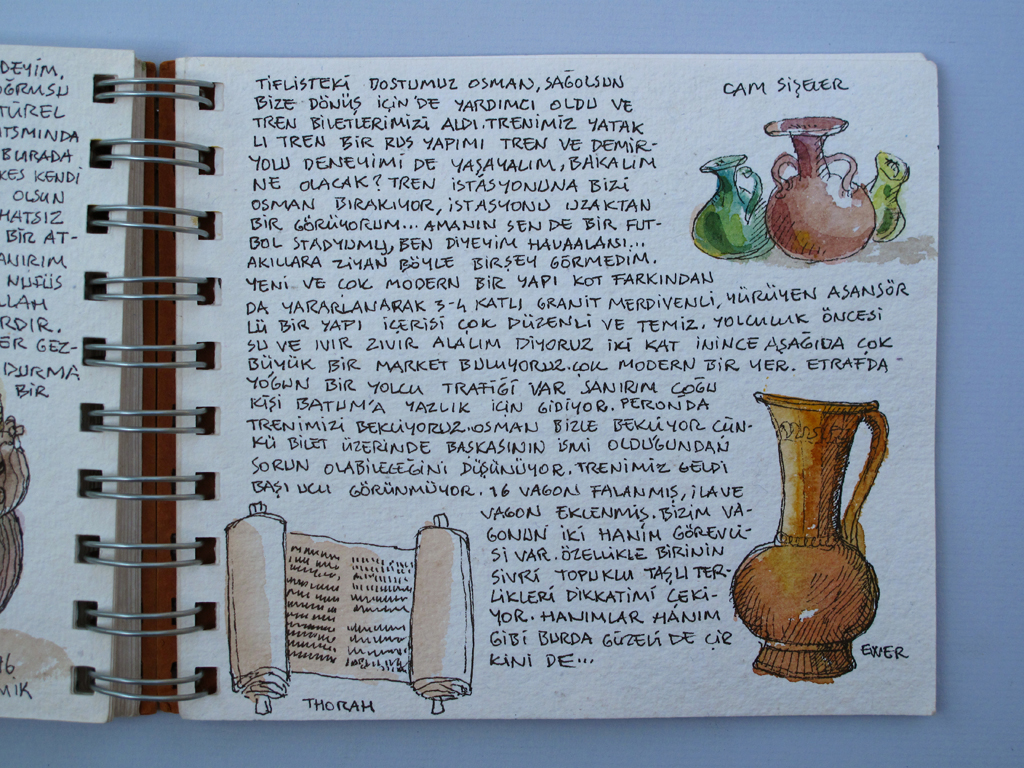 DEYİM,
ĞRUSU
TÜREL
ATSMINDA
BURADA
KES KENDİ
OLSUN
HATSIZ
BİR AT-
ANIRIM
NUFÜS
LLAH
RDIR.
ER GEZ-
DURMA
BİR
16
MİK
TİFLİSTEKİ DOSTUMUZ OSMAN, SAĞOLSUN
BİZE DÖNÜŞ İÇİN'DE YARDIMCI OLDU VE
TREN BİLETLERİMİZİ ALDI. TRENİMİZ YATAK
LI TREN BİR RUS YAPIMI TREN VE DEMİR-
YOLU DENEYİMİ DE YAŞAYALIM, BAKALIM
NE OLACAK? TREN İSTASYONUNA BİZİ
OSMAN BIRAKIYOR, İSTASYONU UZAKTAN
BİR GÖRÜYORUM... AMANIN SEN DE BİR FUT-
BOL STADYUMU, BEN DİYEYİM HAVAALANI...
AKILLARA ZİYAN BÖYLE BİRŞEY GÖRMEDİM.
YENİ VE ÇOK MODERN BİR YAPI KOT FARKINDAN
DA YARARLANARAK 3-4 KATLI GRANİT MERDİVENLİ, YÜRÜYEN ASANSÖR
LÜ BİR YAPI İÇERİSİ ÇOK DÜZENLİ VE TEMİZ. YOLCULUK ÖNCESİ
SU VE IVIR ZIVIR ALALIM DİYORUZ İKİ KAT İNİNCE AŞAĞIDA ÇOK
BÜYÜK BİR MARKET BULUYORUZ. ÇOK MODERN BİR YER. ETRAFDA
YOĞUN BİR YOLCU TRAFİĞİ VAR SANIRIM ÇOĞU
KİŞİ BATUM'A YAZLIK İÇİN GİDİYOR. PERONDA
TRENİMİZİ BEKLİYORUZ. OSMAN BİZLE BEKLİYOR ÇÜN-
KÜ BİLET ÜZERİNDE BAŞKASININ İSMİ OLDUĞUNDAN
SORUN OLABİLECEĞİNİ DÜŞÜNÜYOR. TRENİMİZ GELDİ
BAŞI UCU GÖRÜNMÜYOR. 16 VAGON FALANMIŞ, İLAVE
VAGON EKLENMİŞ. BİZİM VA-
GONUN İKİ HANIM GÖREVLİ-
Sİ VAR. ÖZELLİKLE BİRİNİN
SİVRİ TOPUKLU TAŞLI TER-
LİKLERİ DİKKATİMİ ÇEKİ-
YOR. HANIMLAR HANIM
GİBİ BURDA GÜZELİ DE ÇİR
KİNİ DE...
CAM ŞİŞELER
EWER
THORAH